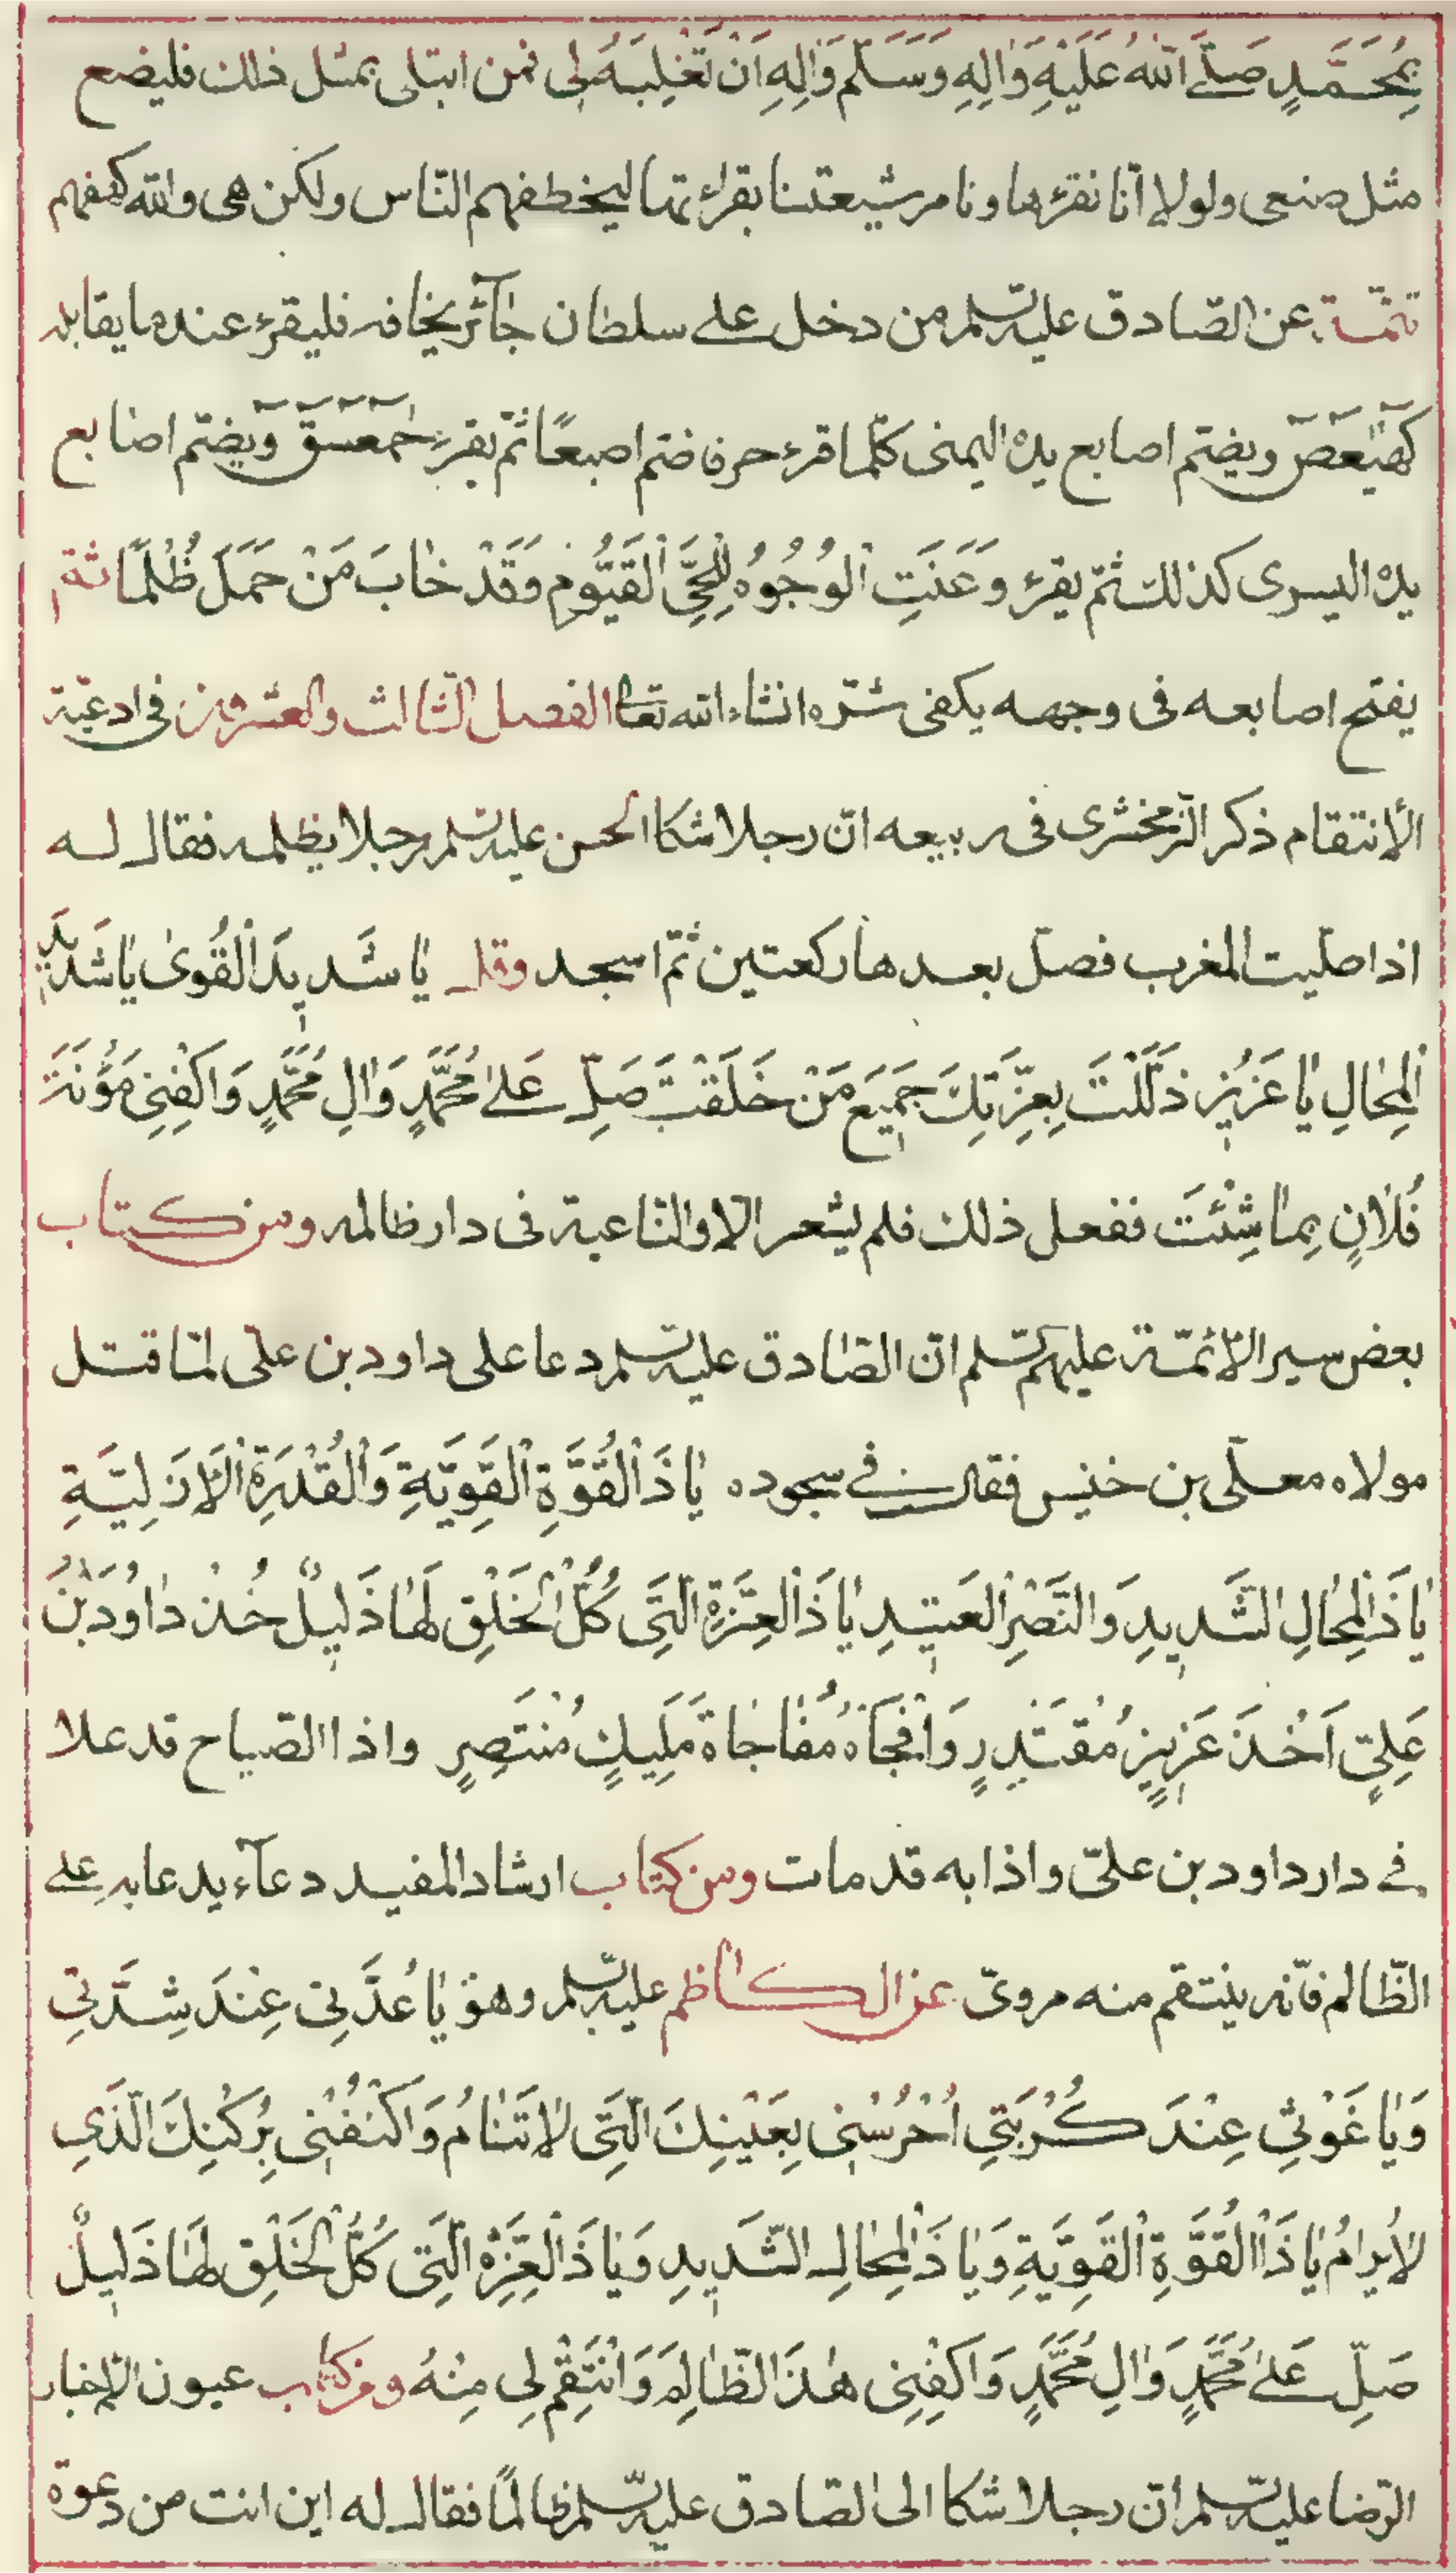 بِمُحَمَّدٍ صَلَّى اللهُ عَلَيْهِ وَاٰلِهِ وَسَلَّمَ وَاٰلِهِ اَنْ تَغْلِبَهُ لِى فمن ابتلى بمثل ذلك فليضع
مثل صنعى ولولا انّا نقرؤها ونامر شيعتنا بقرائتها ليخطفهم النّاس ولكن هى والله كهفهم
تتمّة عن الصّادق عليه السّلم من دخل على سلطان جٰآئر يخافه فليقرء عند ما يقابله
كٓهٰيٰعٓصٓ ويضمّ اصابع يده اليمنى كلّما قرء حرفا ضم اصبعًا ثمّ يقرء حٰمٓعٓسٓقٓ ويضمّ اصابع
يده اليسرى كذلك ثمّ يقرء وَعَنَتِ الْوُجُوهُ لِلْحَىِّ الْقَيُّومِ وَقَدْ خٰابَ مَنْ حَمَلَ ظُلْمًا ثمّ
يفتح اصابعه فى وجهه يكفى شرّه انشاء الله تعا الفصل الثّالث والعشرون فى ادعية
الأنتقام ذكر الزّمخشرى فى ربيعه انّ رجلا شكا الحسن عليه السّلم رجلا يظلمه فقال له
اذا صلّيت المغرب فصلّ بعدها ركعتين ثمّ اسجد وقل يٰا شَدِيدَ الْقُوىٰ يٰا شَدِيدَ
الْمِحٰالِ يٰا عَزِيزُ ذَلَّلْتَ بِعِزَّتِكَ جَمِيعَ مَنْ خَلَقْتَ صَلِّ عَلىٰ مُحَمَّدٍ وَاٰلِ مُحَمَّدٍ وَاكْفِنِى مَؤُنَةَ
فُلٰانٍ بِمٰا شِئْتَ ففعل ذلك فلم يشعر الا والنّاعية فى دار ظالمه ومن كتاب
بعض سير الأئمّة عليهم السّلم انّ الصّادق عليه السّلم دعا على داود بن علىّ لمّا قتل
مولاه معلّى بن خنيس فقال فى سجوده يٰا ذَا الْقُوَّةِ الْقَوِيَّةِ وَالْقُدْرَةِ الْاَزَلِيَّةِ
يٰا ذَا الْمِحٰالِ الشَّدِيدِ وَالنَّصْرِ الْعَتِيدِ يٰا ذَا الْعِزَّةِ الَّتِى كُلُّ الْخَلْقِ لَهٰا ذَلِيلٌ خُذْ دٰاوُدَ بْنَ
عَلِىٍّ اَخْذَ عَزِيزٍ مُقْتَدِرٍ وَافْجَأْهُ مُفٰاجٰاةَ مَلِيكٍ مُنْتَصِرٍ واذا الصّياح قد علا
فى دار داود بن علىّ واذا به قد مات ومن كتاب ارشاد المفيد دعآء يدعا به على
الظّالم فانّه ينتقم منه مروىّ عن الكاظم عليه السّلم وهو يٰا عُدَّتِى عِنْدَ شِدَّتِى
وَيٰا غَوْثِى عِنْدَ كُرْبَتِى اُحْرُسْنِى بِعَيْنِكَ الَّتِى لٰا تَنٰامُ وَاكْنُفْنِى بِرُكْنِكَ الَّذِى
لٰا يُرٰامُ يٰا ذَا الْقُوَّةِ الْقَوِيَّةِ وَيٰا ذَا الْمِحٰالِ الشَّدِيدِ وَيٰا ذَا الْعِزَّةِ الَّتِى كُلُّ الْخَلْقِ لَهٰا ذَلِيلٌ
صَلِّ عَلىٰ مُحَمَّدٍ وَاٰلِ مُحَمَّدٍ وَاكْفِنِى هٰذَا الظّٰالِمَ وَانْتَقِمْ لِى مِنْهُ ومن كتاب عيون الاخبار
الرّضا عليه السّلم انّ رجلا شكا الى الصّادق عليه السّلم ظالمًا فقال له اين انت من دعوة